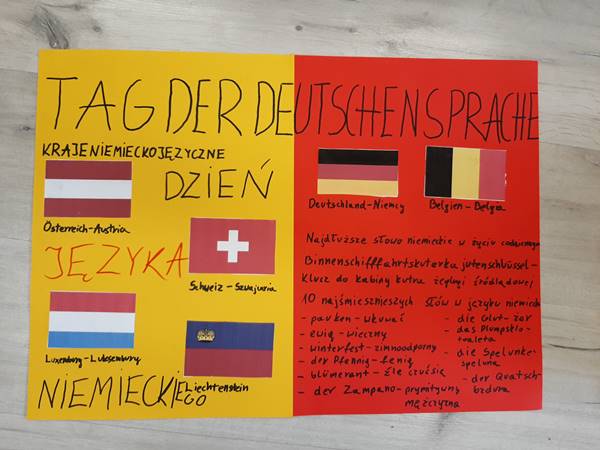 TAG DER DEUTSCHEN SPRACHE
KRAJE NIEMIECKOJĘZYCZNE
DZIEŃ
Österreich-Austria
JĘZYKA
Schweiz - Szwajcaria
Luxemburg - Luksemburg
Liechtenstein
NIEMIECKIEGO
Deutschland-Niemcy
Belgien-Belgia
Najdłuższe słowo niemieckie w życiu codziennym
Klucz do kabiny kutra żeglugi śródlądowej
10 najśmieszniejszych słów w języku niemieck
- pauken - wkuwać
- ewig - wieczny
- winterfest - zimnoodporny
- der Pfennig - fenig
- blümerant - źle czuć się
- der Zampano - prymitywny
mężczyzna
- die Glut - żar
- das Plumpsklo -
toaleta
- die Spelunke -
speluna
- der Quatsch -
bzdura